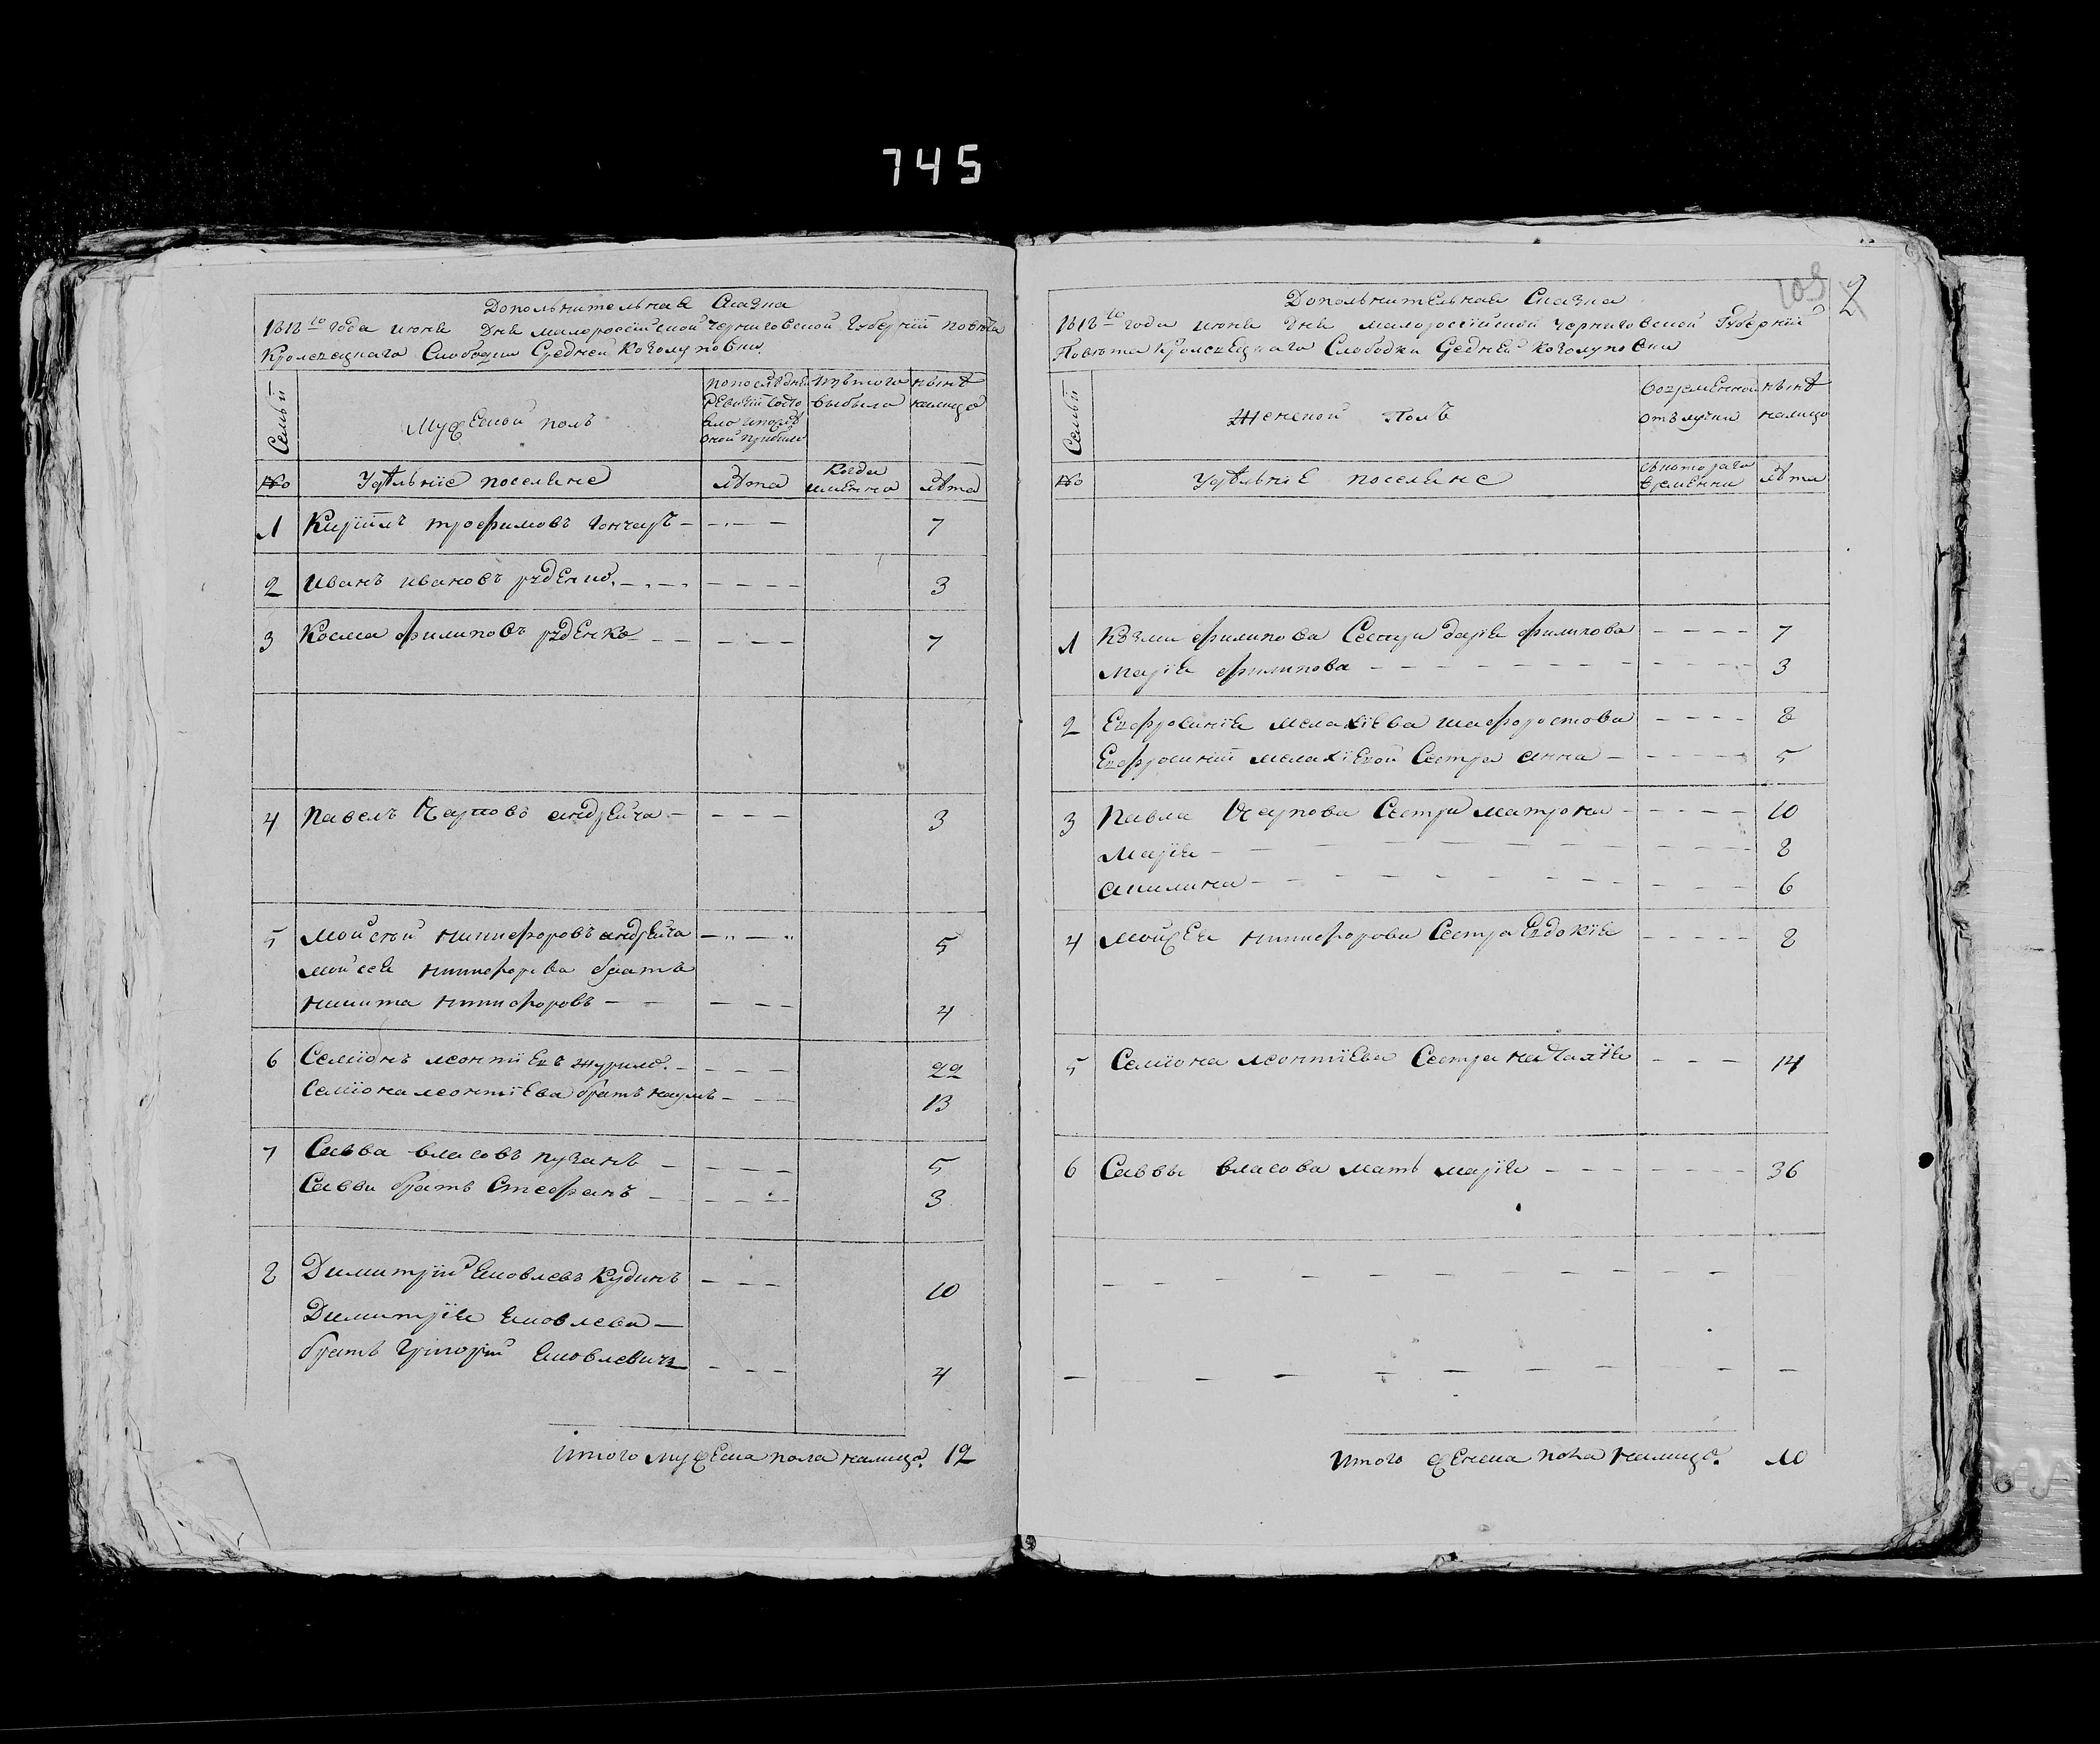 745
Дополнительная Сказка
1818го года июня дня малоросiйской Черниговской Губернiи повѣта
Кролевецкаго Слободки Средней Коголуповки
Семьи
Мужеской полъ
попослѣдней
ревизiи состо
яло и послѣ
оной прибыло
изътого
выбыло
нынѣ
налицо
№
Удѣльнiе поселяне
Лѣта
Когда
именно
Лѣта
1 Кирiилъ трофимовъ Гончаръ 7
2 иванъ ивановъ руденко 3
3 Косма филиповъ руденко 7
4 Павелъ Карповъ андрейча 3
5 Мойсей никифоровъ андрейча 5
Мойсея никифорова братъ
никита никифоровъ 4
6 Семiонъ леонтiевъ журило 22
Семiона леонтiева братъ наумъ 13
7 Савва власовъ пузанъ 5
Саввы братъ Стефанъ 3
8 Димитрiй яковлевъ Кудинъ 10
Димитрiя яковлева
братъ григорiй яковлевичъ 4
Итого мужеска пола налицо. 12
109
2
Дополнительная Сказка
1818го года июня дня малоросiйской черниговской Губернiи
Повѣта Кролевецкаго Слободки Средней Коголуповки
Семьи
Женской Полъ
Вовременной
отълучки
нынѣ
налицо
№
Удѣльнiе поселяне
съкотораго
времени
Лѣта
1 Козмы филипова Сестри дарiя филипова 7
марiя филипова 3
2 Евфросинiя малахiева шафоростова 8
Евфросинiи малахiевой Сестра анна 5
3 Павла Карпова Сестри матрона 10
Марiя 8
акилина 6
4 Мойсея никифорова Сестра Евдокiя 8
5 Семiона леонтiева Сестра наталiя 14
6 Саввы власова мать марiя 36
Итого женска пола налицо. 10